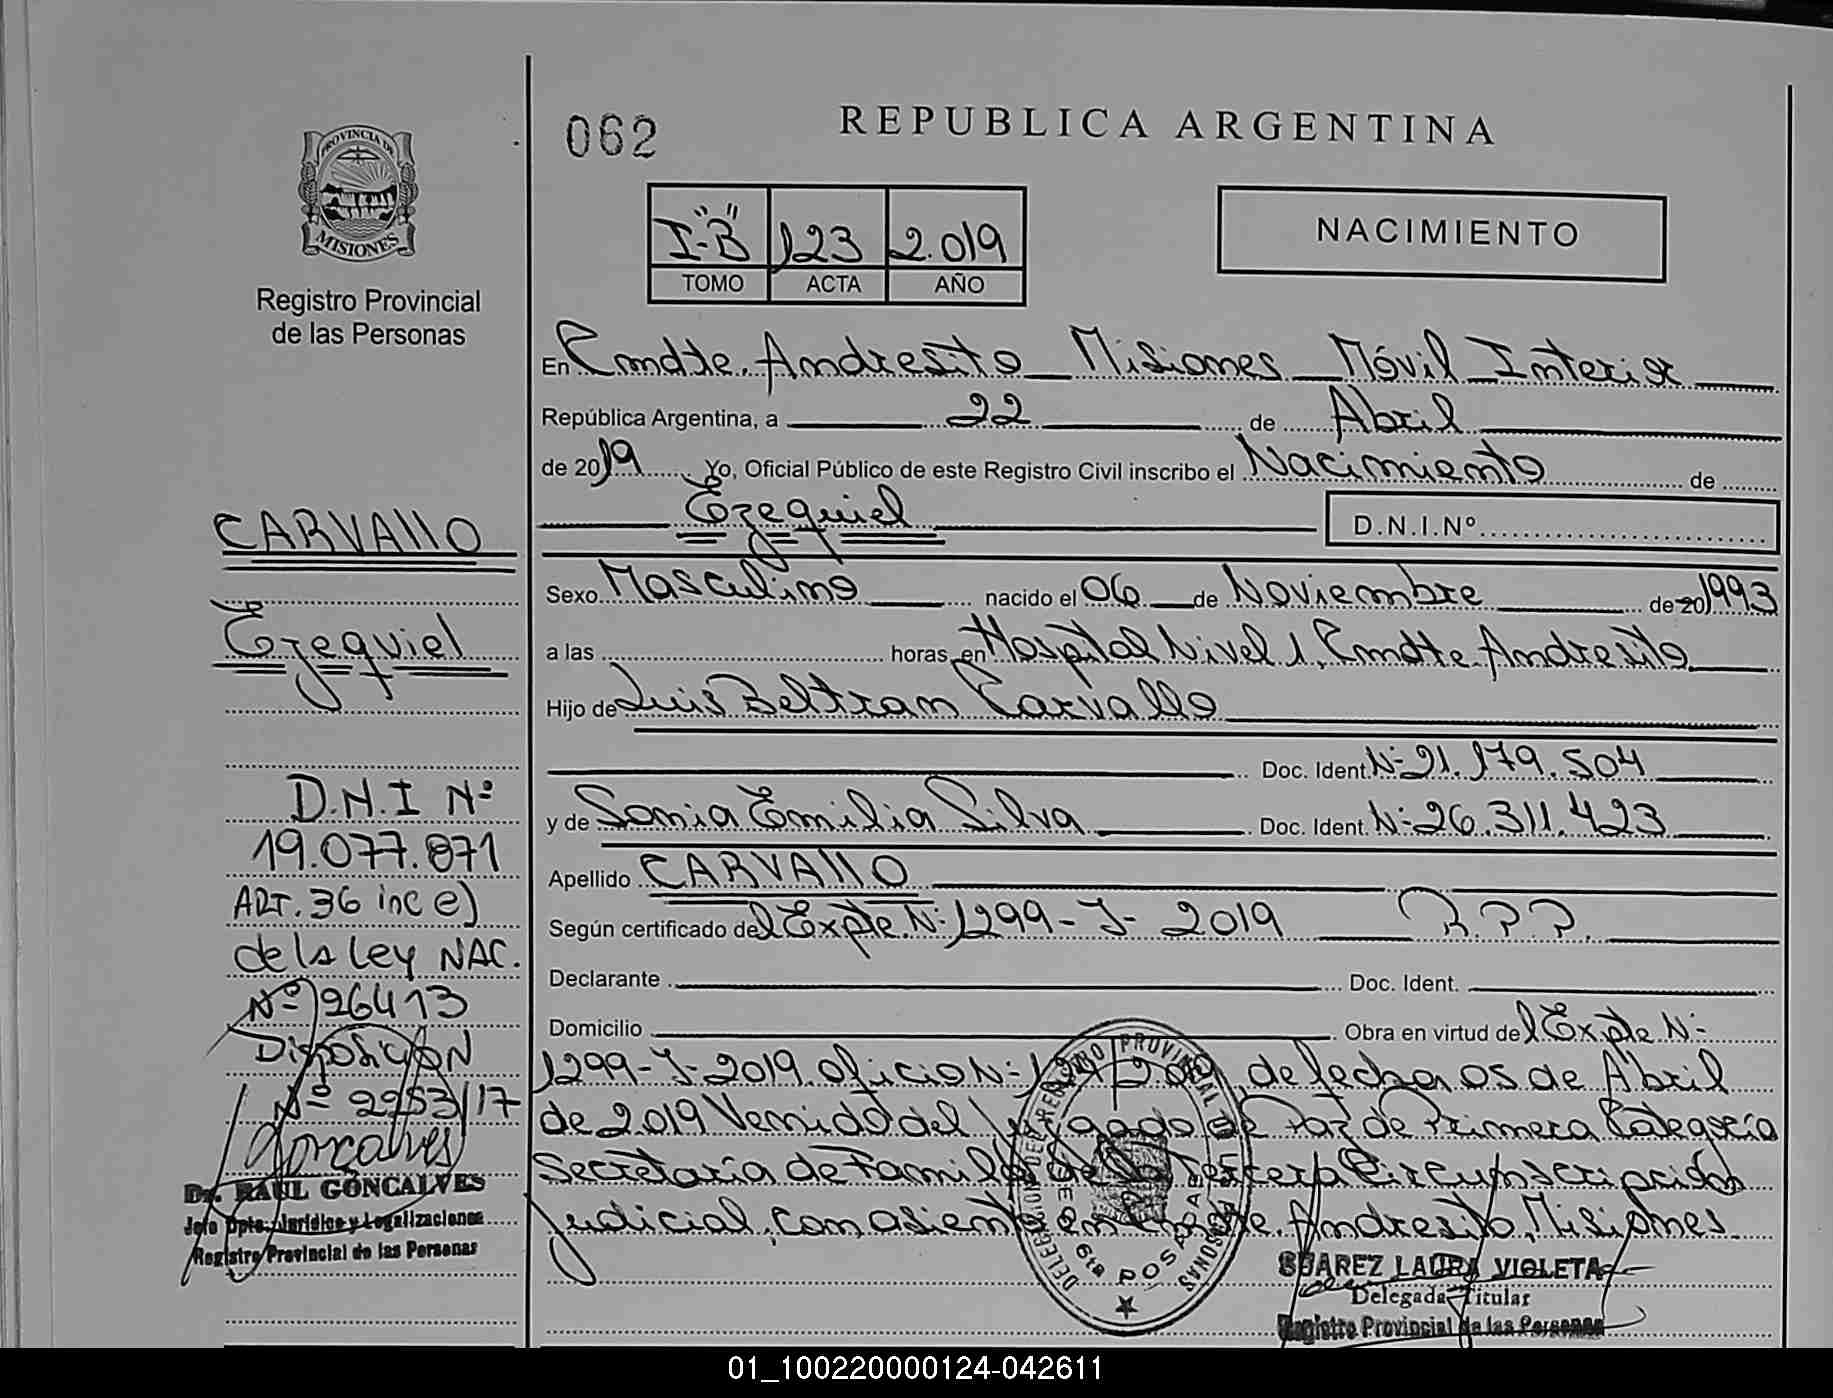 PROVINCIA DE
MISIONES
Registro Provincial
de las Personas
CARVALLO
Ezequiel
D.N.I Nº
19.077.871
ART. 36 inc e)
de la Ley NAC.
Nº 26413
Disposición
Nº 2253/17
Goncalves
Dr. RAUL GONCALVES
Jefe Dpto. Jurídico y Legalizaciones
Registro Provincial de las Personas
062
REPUBLICA ARGENTINA
I-"B" 123 2.019
TOMO ACTA AÑO
NACIMIENTO
En Cmdte. Andresito Misiones Móvil Interior
República Argentina, a 22 de Abril
de 2019 Yo, Oficial Público de este Registro Civil inscribo el Nacimiento de
Ezequiel D.N.I.Nº
Sexo Masculino nacido el 06 de Noviembre de 20 1993
a las horas, en Hospital Nivel 1, Cmdte. Andresito
Hijo de Luis Beltran Carvallo
Doc. Ident. Nº 21.179.504
y de Sonia Emilia Silva Doc. Ident. Nº 26.311.423
Apellido CARVALLO
Según certificado del Expte. Nº 1299-J- 2019 R.P.P.
Declarante Doc. Ident.
Domicilio Obra en virtud del Expte Nº
1299-J-2019. Oficio Nº de fecha 05 de Abril
de 2.019 Venido del Juzgado de Paz de Primera Categoría
Secretaría de Familia de la Tercera Circunscripción
Judicial, con asiento en Cmdte. Andresito, Misiones.
POSADAS
SUAREZ LAURA VIOLETA
Delegada Titular
Registro Provincial de las Personas
01_100220000124-042611